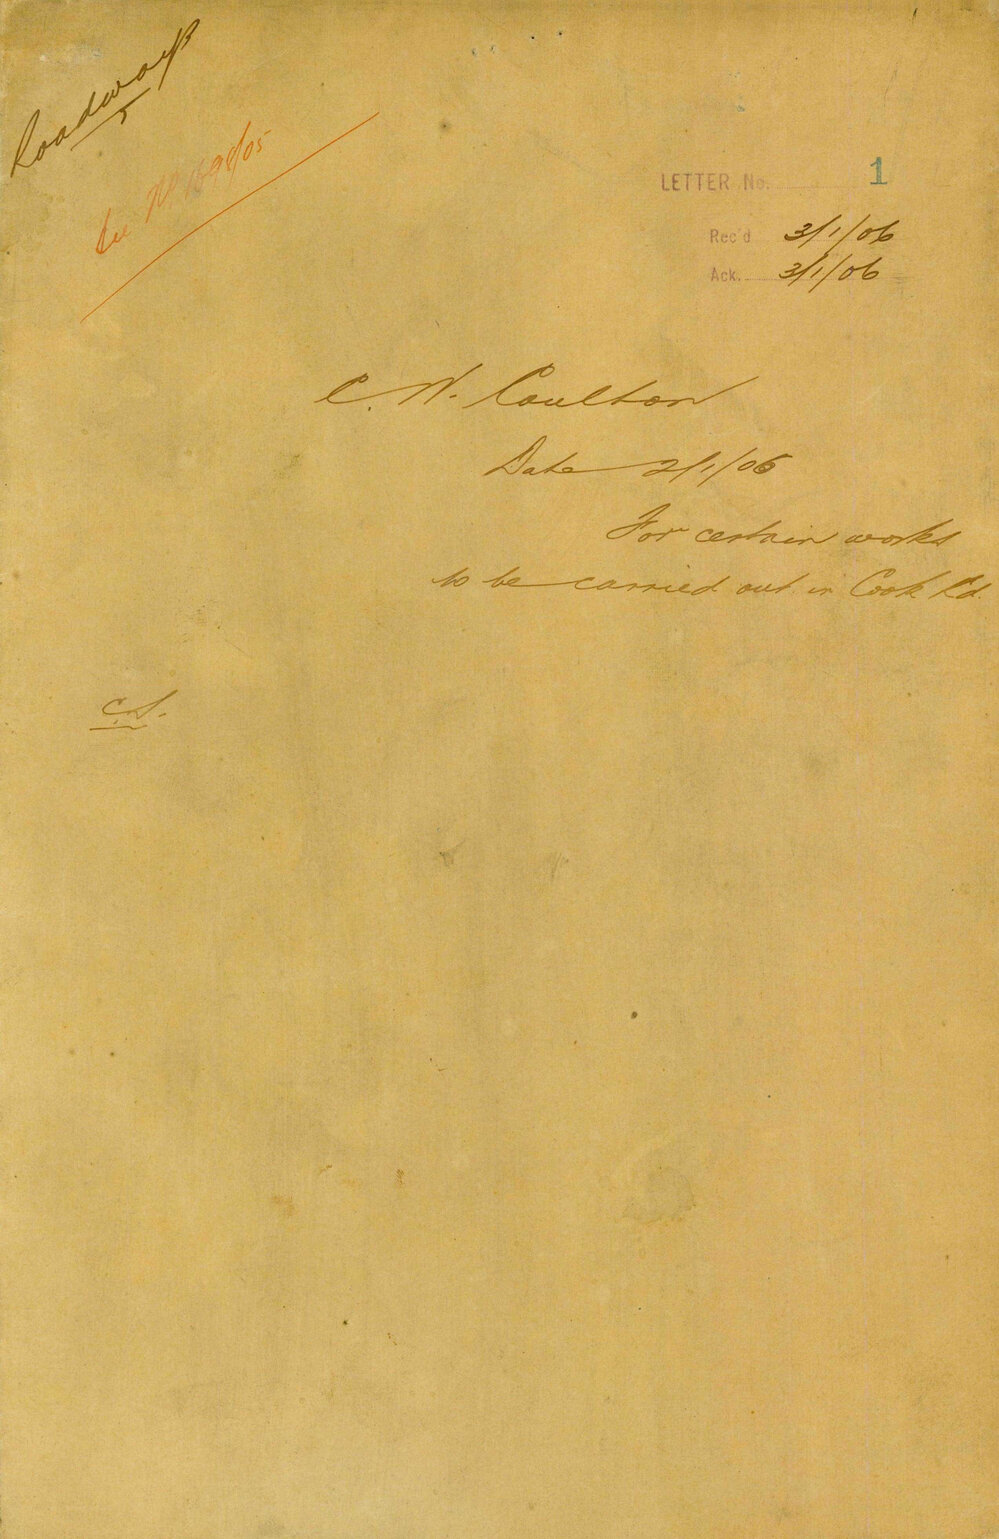 Roadways
5
See
98/05
LETTER No. 1
Rec'd 3/1/06
Ack. 3/1/06
C. W. Coulton
Date 2/1/06
For certain works
to be carried out in Cook Rd.